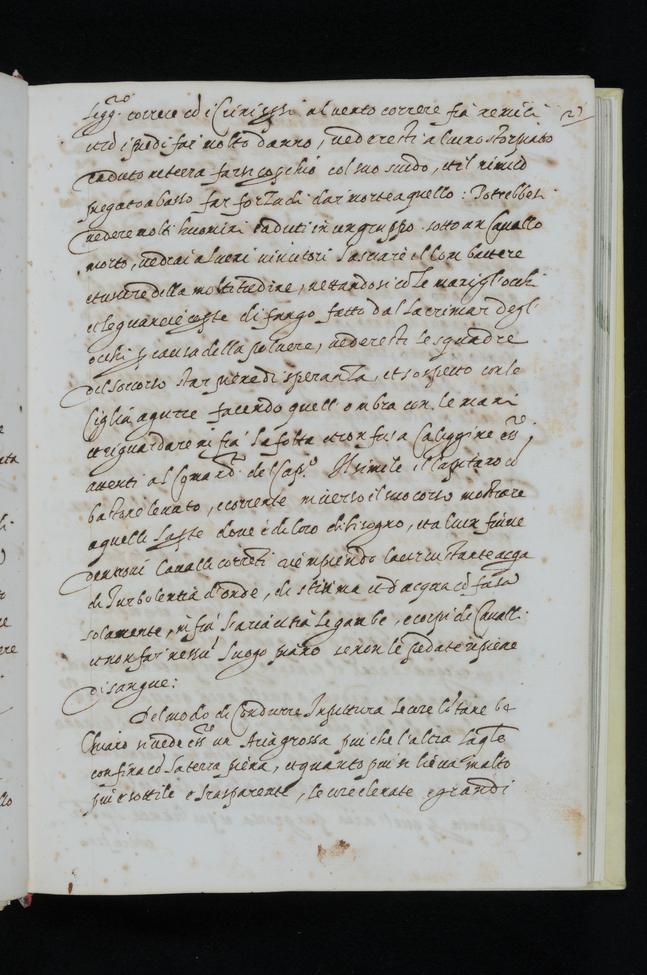 legg.ro correre cō i Crini essi al uento correre frà nemici
et cō i piedi far molto danno, uederesti alcuno stormato 27
caduto in terra farsi coperchio col suo scudo, et il nimico
piegato abasso far forza di dar morte a quello: Potrebbesi
uedere molti huomini caduti in un gruppo sotto un Cauallo
morto, uedrai alcuni uincitori lasciare il combattere
et uscire della moltitudine, nettandosi cō le mani gl'occhi
et le guancie di fango fatto dal lacrimar degl'
occhi p causa della poluere, uederesti le squadre
del soccorso star piene di speranza, et sospetto con le
Ciglia agutze facendo quell'ombra con le mani
et riguardare infrà la folta et confusa Caliggine
attenti al Comand.to del Cap.o Il simile il
bastone leuato, e corrente inuerso il suo corso mostrare
a quelli doue è di loro di bisogno, et alcun fiume
dentroui Caualli correti riempiendo la circunstante acqa
di Turbolentia d'onde, di stiuma et d'acqua cōfusa
solamente, infrà l'aria et trà le gambe, e corpi di Caualli
et non far nessū luogo piano se non le pedate ripiene
di sangue:
Del modo di Condurre In pittura le cose lōtane 64
Chiaro si uede un Aria grossa piu che l'altra laqle
confina cō la terra piena, et quanto piu si lieua in alto
piu è sottile e trasparente, le cose eleuate e grandi